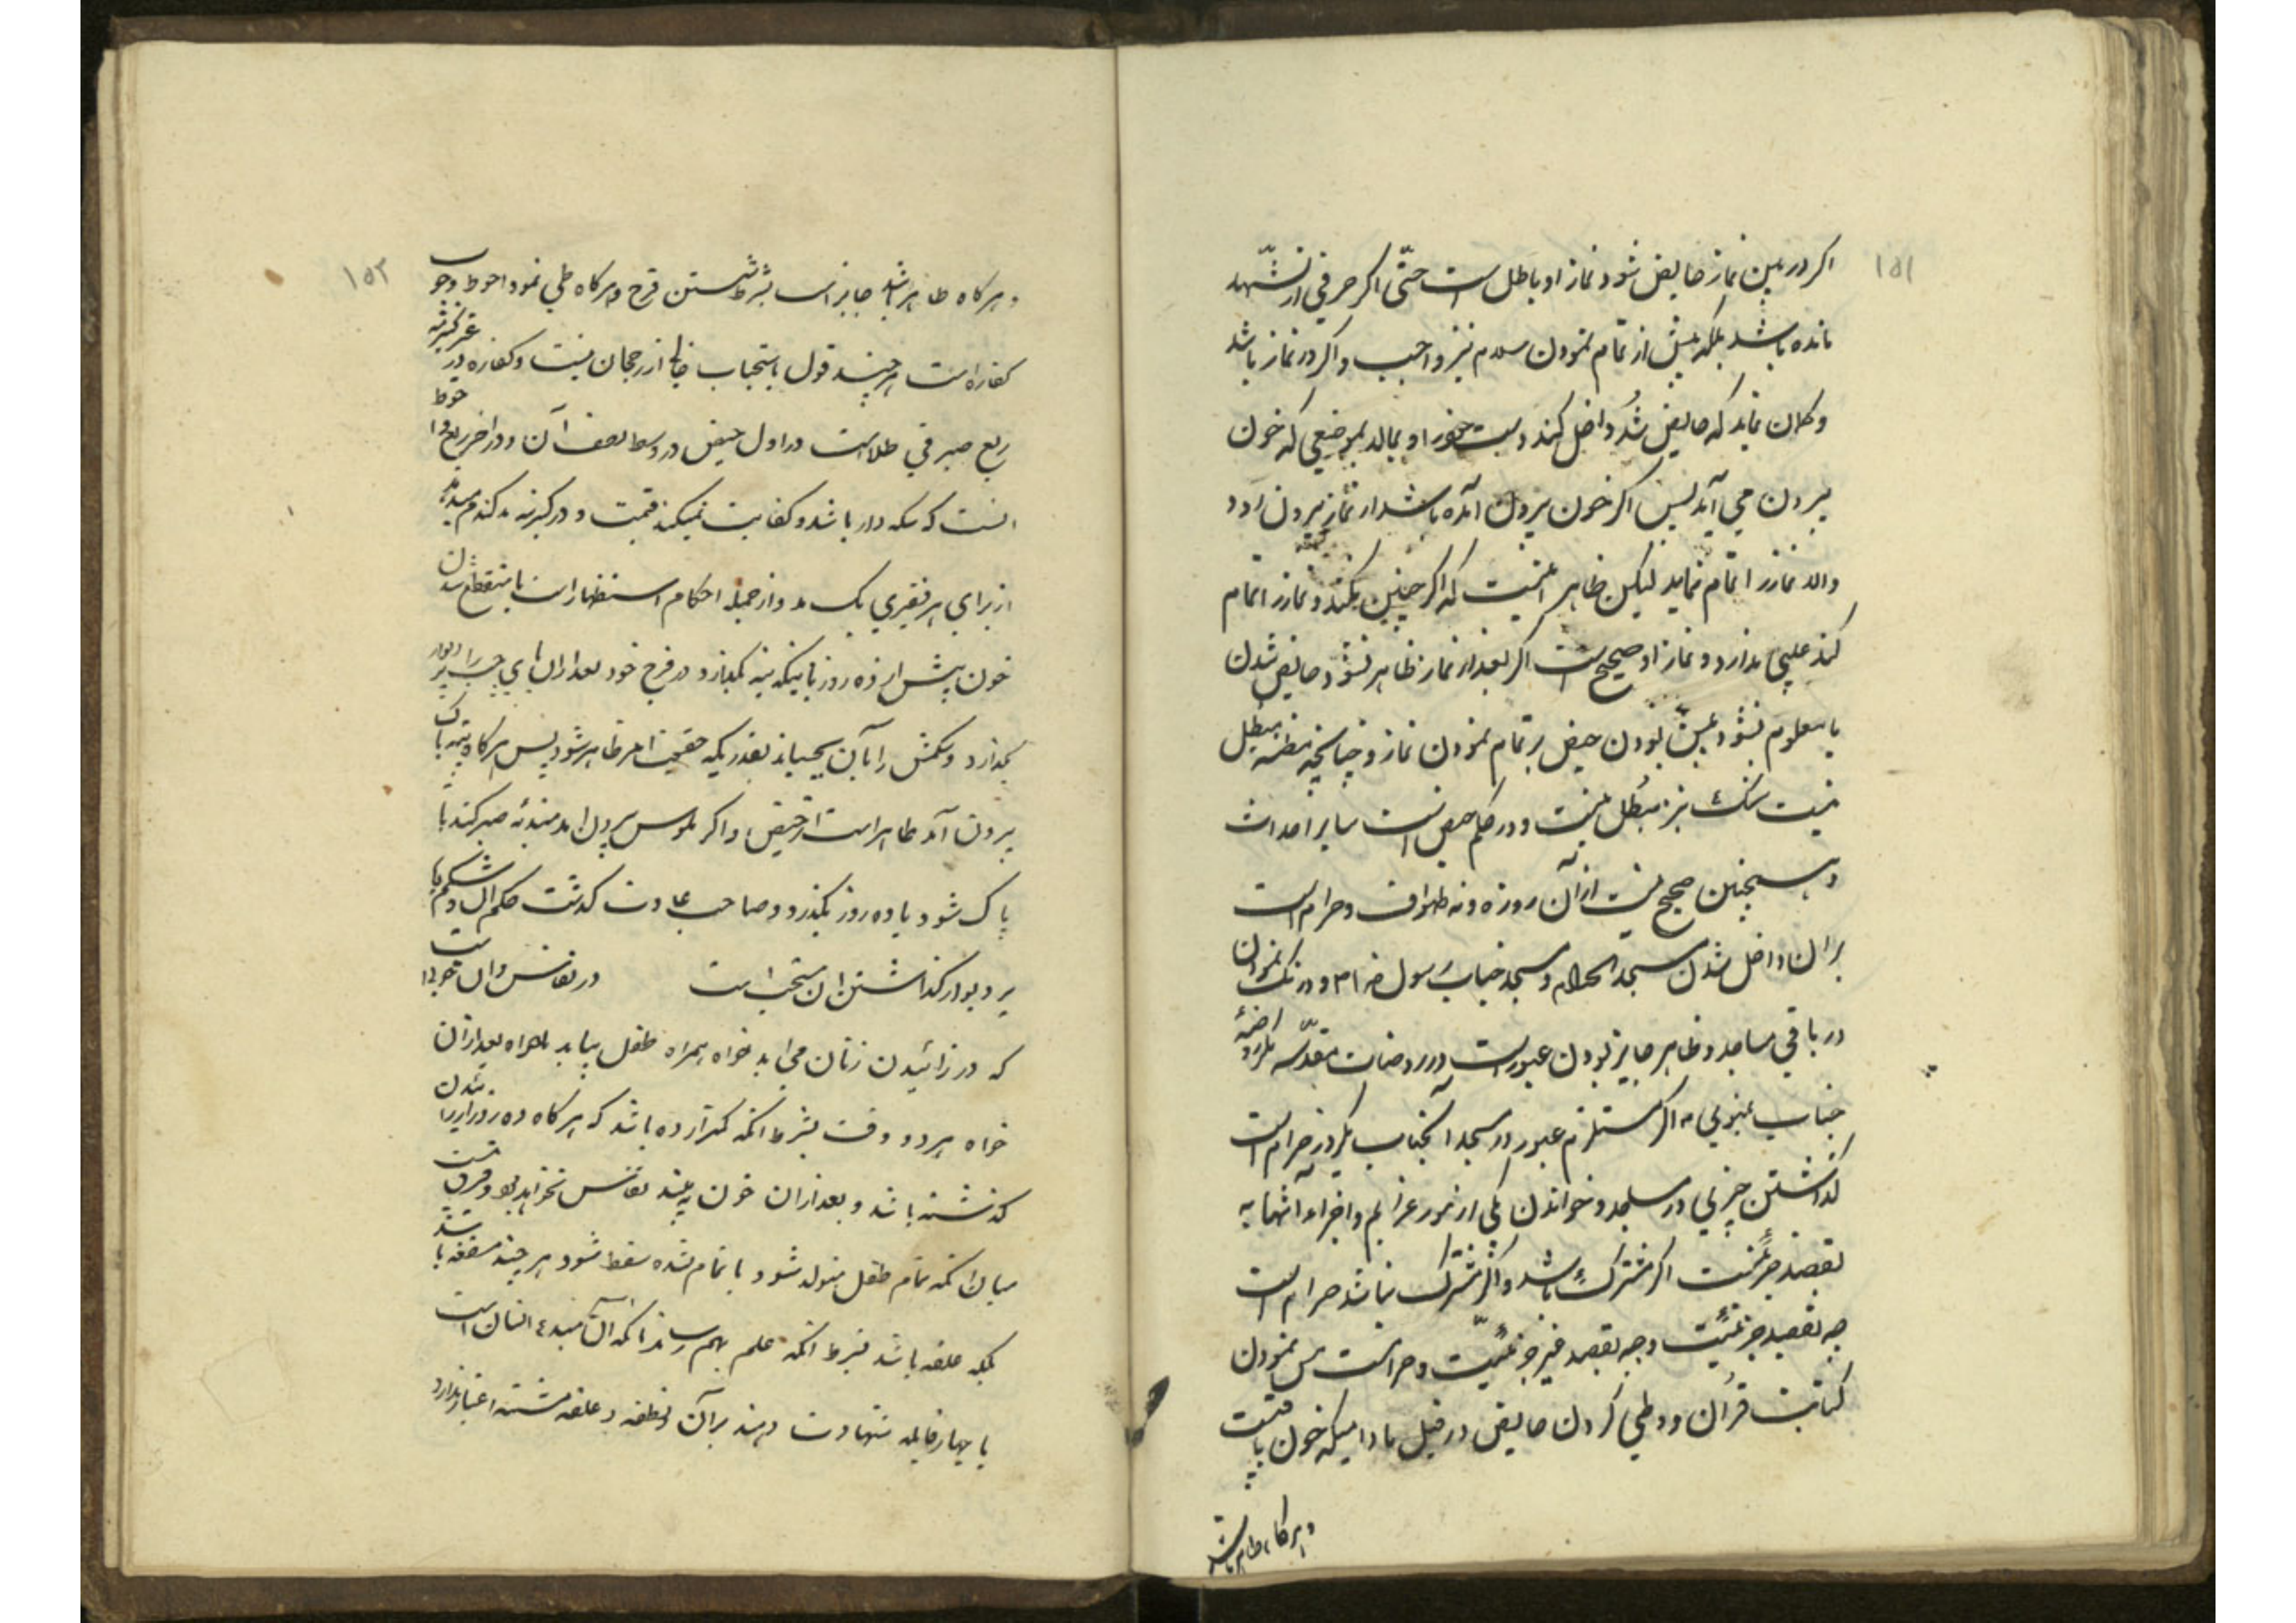 ١٥١
اکر در بین نماز حایض شود نماز او باطل است حتّی اکر حرفی از تشهّد
مانده باشد بلکه پیش از تمام نمودن سلام نیز واجب و اکر در نماز باشد
وکمان نماید که حایض شُد داخل کند دست خود را و بمالد بموضعی که خون
بیرون می آید پس اکر خون بیرون آمده باشد از نماز بیرون رود
والا نماز را تمام نماید لیکن ظاهر اینست که اکر چنین نکند و نماز را تمام
کند عیبی ندارد و نماز او صحیح است اکر بعد از نماز ظاهر نشود حایض شدن
یا معلوم نشود پیش بودن حیض بر تمام نمودن نماز و چنانچه مظنه مبطل
نیست شک نیز مبطل نیست و در حکم حیض است سایر احداث
و همچنین صحیح نیست از آن روزه و نه طواف و حرام است
بر ان داخل شدن مسجد الحرام و مسجد جناب رسول خدا م و درنک نمودن
در باقی مساجد و ظاهر جایز نبودن عبور است در روضات مقدّسه
جناب نبوی ص اکر مستلزم عبور در مسجد آنجناب نکردد حرام است
کذاشتن چیزی در مساجد و خواندن یکی از سور عزایم و اجزاء آنها به
بقصد جزئیت اکر مشترک باشد و اکر مشترک نباشد حرام است
چه بقصد جزئیت و چه بقصد غیر جزئیّت و حرام است مس نمودن
کتابت قرآن و وطی کردن حایض در قبل مادامیکه خون باقیست
و هرکاه طاهر باشد
١٥٢
و هرکاه طاهر باشد جایز است بشرط شستن فرج و هرکاه وطی نمود احوط وجوب
کفاره است هر چند قول باستحباب خالی از رجحان نیست و کفاره در غیر کنیزش
ربع صیرفی طلاست در اول حیض و در وسط نصف آن و در اخر ربع و احوط
انست که سکه دار باشد و کفایت نمیکند قیمت و در کنیز سه مد کندم میدهد
از برای هر فقیری یک مد و از جمله احکام استظهار است با منقطع شدن
خون پیش از ده روز باینکه پنبه بکذارد در فرج خود بعد از ان پای چپ را بر دیوار
بکذارد و شکمش را بآن بچسباند بقدریکه حقیقت امر ظاهر شود پس هرکاه پنبه پاک
بیرون آمد طاهر است از حیض و اکر ملوس بیرون امد مبتدئه صبر کند تا
پاک شود یا ده روز بکذرد و صاحب عادت کذشت حکم ان و شکم با
بر دیوار کذاشتن ان مستحب است در نفاس و ان خونیست
که در زائیدن زنان می اید خواه همراه طفل بیاید یا بعد از ان
خواه هر دو وقت بشرط انکه کمتر از ده باشد که هرکاه ده روز از زائیدن
کذشته باشد و بعد از ان خون به بیند نفاس نخواهد بود و فرق نیست
میان انکه تمام طفل متولد شود یا تمام نشده سقط شود هر چند مضغه باشد
بلکه علقه باشد بشرط انکه علم بهم رساند انکه آن مبدء انسان است
یا چهار قابله شهادت دهند بر آن و نطفه و علقه مشتبه اعتبار ندارد